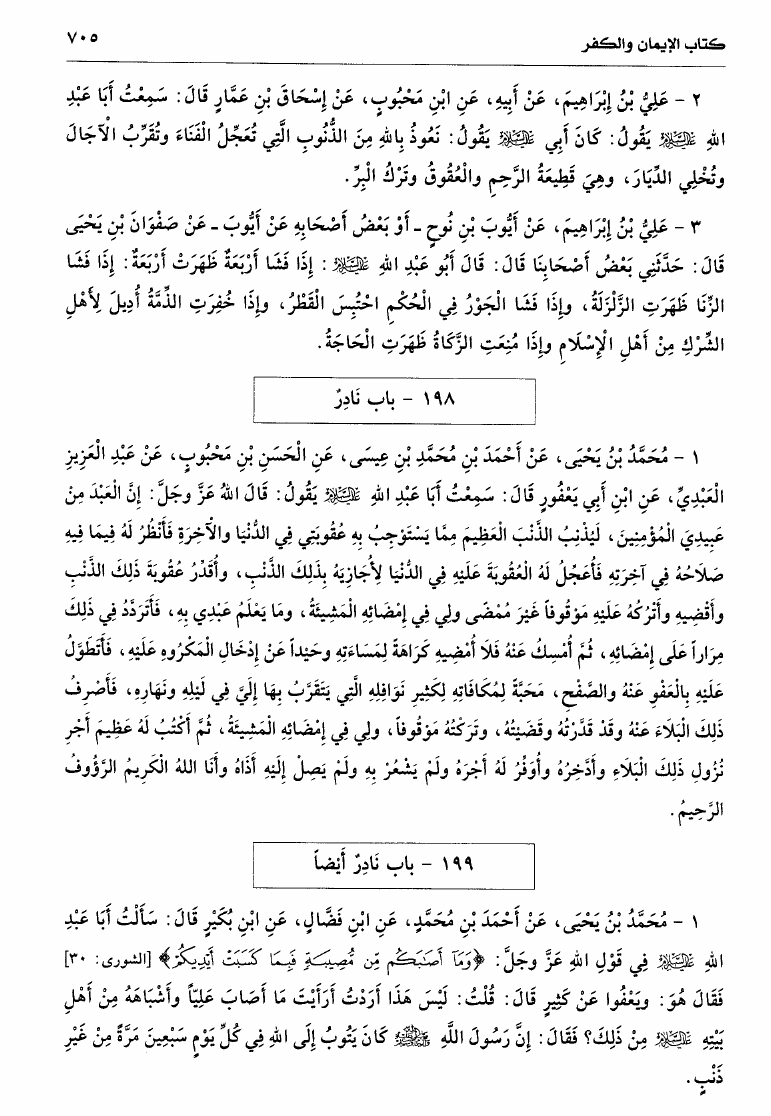 كتاب الإيمان والكفر ٧٠٥
٢ - عَلِيُّ بْنُ إِبْرَاهِيمَ، عَنْ أَبِيهِ، عَنِ ابْنِ مَحْبُوبٍ، عَنْ إِسْحَاقَ بْنِ عَمَّارٍ قَالَ: سَمِعْتُ أَبَا عَبْدِ
اللهِ عَلَيْهِ السَّلَامُ يَقُولُ: كَانَ أَبِي عَلَيْهِ السَّلَامُ يَقُولُ: نَعُوذُ بِاللهِ مِنَ الذُّنُوبِ الَّتِي تُعَجِّلُ الْفَنَاءَ وتُقَرِّبُ الْآجَالَ
وتُخْلِي الدِّيَارَ، وهِيَ قَطِيعَةُ الرَّحِمِ والْعُقُوقُ وتَرْكُ الْبِرِّ.
٣ - عَلِيُّ بْنُ إِبْرَاهِيمَ، عَنْ أَيُّوبَ بْنِ نُوحٍ ـ أَوْ بَعْضُ أَصْحَابِهِ عَنْ أَيُّوبَ ـ عَنْ صَفْوَانَ بْنِ يَحْيَى
قَالَ: حَدَّثَنِي بَعْضُ أَصْحَابِنَا قَالَ: قَالَ أَبُو عَبْدِ اللهِ عَلَيْهِ السَّلَامُ: إِذَا فَشَا أَرْبَعَةٌ ظَهَرَتْ أَرْبَعَةٌ: إِذَا فَشَا
الزِّنَا ظَهَرَتِ الزَّلْزَلَةُ، وإِذَا فَشَا الْجَوْرُ فِي الْحُكْمِ احْتُبِسَ الْقَطْرُ، وإِذَا خُفِرَتِ الذِّمَّةُ أُدِيلَ لِأَهْلِ
الشِّرْكِ مِنْ أَهْلِ الْإِسْلَامِ وإِذَا مُنِعَتِ الزَّكَاةُ ظَهَرَتِ الْحَاجَةُ.
١٩٨ - باب نَادِرٌ
١ - مُحَمَّدُ بْنُ يَحْيَى، عَنْ أَحْمَدَ بْنِ مُحَمَّدِ بْنِ عِيسَى، عَنِ الْحَسَنِ بْنِ مَحْبُوبٍ، عَنْ عَبْدِ الْعَزِيزِ
الْعَبْدِيِّ، عَنِ ابْنِ أَبِي يَعْفُورٍ قَالَ: سَمِعْتُ أَبَا عَبْدِ اللهِ عَلَيْهِ السَّلَامُ يَقُولُ: قَالَ اللهُ عَزَّ وجَلَّ: إِنَّ الْعَبْدَ مِنْ
عَبِيدِيَ الْمُؤْمِنِينَ، لَيُذْنِبُ الذَّنْبَ الْعَظِيمَ مِمَّا يَسْتَوْجِبُ بِهِ عُقُوبَتِي فِي الدُّنْيَا والْآخِرَةِ فَأَنْظُرُ لَهُ فِيمَا فِيهِ
صَلَاحُهُ فِي آخِرَتِهِ فَأُعَجِّلُ لَهُ الْعُقُوبَةَ عَلَيْهِ فِي الدُّنْيَا لِأُجَازِيَهُ بِذَلِكَ الذَّنْبِ، وأُقَدِّرُ عُقُوبَةَ ذَلِكَ الذَّنْبِ
وأَقْضِيهِ وأَتْرُكُهُ عَلَيْهِ مَوْقُوفاً غَيْرَ مُمْضًى ولِي فِي إِمْضَائِهِ الْمَشِيئَةُ، ومَا يَعْلَمُ عَبْدِي بِهِ، فَأَتَرَدَّدُ فِي ذَلِكَ
مِرَاراً عَلَى إِمْضَائِهِ، ثُمَّ أُمْسِكُ عَنْهُ فَلَا أُمْضِيهِ كَرَاهَةً لِمَسَاءَتِهِ وحَيْداً عَنْ إِدْخَالِ الْمَكْرُوهِ عَلَيْهِ، فَأَتَطَوَّلُ
عَلَيْهِ بِالْعَفْوِ عَنْهُ والصَّفْحِ، مَحَبَّةً لِمُكَافَاتِهِ لِكَثِيرِ نَوَافِلِهِ الَّتِي يَتَقَرَّبُ بِهَا إِلَيَّ فِي لَيْلِهِ ونَهَارِهِ، فَأَصْرِفُ
ذَلِكَ الْبَلَاءَ عَنْهُ وقَدْ قَدَّرْتُهُ وقَضَيْتُهُ، وتَرَكْتُهُ مَوْقُوفاً، ولِي فِي إِمْضَائِهِ الْمَشِيئَةُ، ثُمَّ أَكْتُبُ لَهُ عَظِيمَ أَجْرِ
نُزُولِ ذَلِكَ الْبَلَاءِ وأَدَّخِرُهُ وأُوَفِّرُ لَهُ أَجْرَهُ ولَمْ يَشْعُرْ بِهِ ولَمْ يَصِلْ إِلَيْهِ أَذَاهُ وأَنَا اللهُ الْكَرِيمُ الرَّؤُوفُ
الرَّحِيمُ.
١٩٩ - باب نَادِرٌ أَيْضاً
١ - مُحَمَّدُ بْنُ يَحْيَى، عَنْ أَحْمَدَ بْنِ مُحَمَّدٍ، عَنِ ابْنِ فَضَّالٍ، عَنِ ابْنِ بُكَيْرٍ قَالَ: سَأَلْتُ أَبَا عَبْدِ
اللهِ عَلَيْهِ السَّلَامُ فِي قَوْلِ اللهِ عَزَّ وجَلَّ: ﴿وَمَا أَصَابَكُم مِّن مُّصِيبَةٍ فَبِمَا كَسَبَتْ أَيْدِيكُمْ﴾ [الشورى: ٣٠]
فَقَالَ هُوَ: ويَعْفُوا عَنْ كَثِيرٍ قَالَ: قُلْتُ: لَيْسَ هَذَا أَرَدْتُ أَرَأَيْتَ مَا أَصَابَ عَلِيّاً وأَشْبَاهَهُ مِنْ أَهْلِ
بَيْتِهِ عَلَيْهِ السَّلَامُ مِنْ ذَلِكَ؟ فَقَالَ: إِنَّ رَسُولَ اللَّهِ ﷺ كَانَ يَتُوبُ إِلَى اللهِ فِي كُلِّ يَوْمٍ سَبْعِينَ مَرَّةً مِنْ غَيْرِ
ذَنْبٍ.